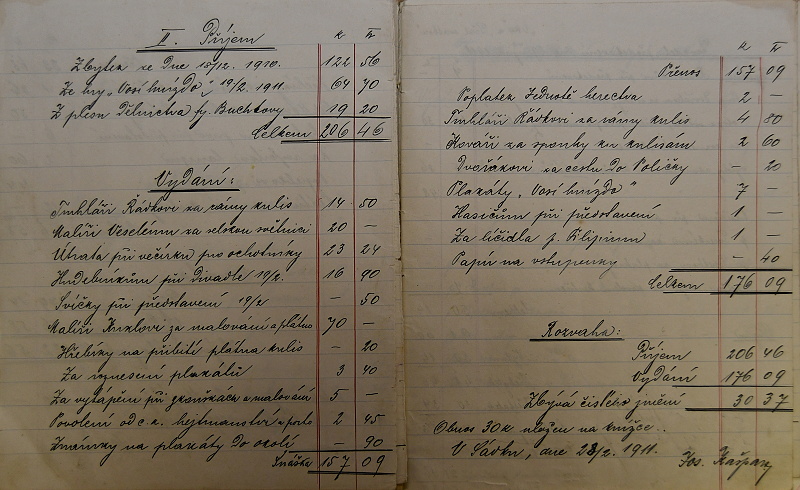 K h
II. Příjem
Zbytek ze dne 15/12. 1910. 122 56
Ze hry „Vosí hnízdo“, 19/2. 1911. 64 70
Z plesu dělnictva fy. Buchtovy 19 20
Celkem 206 46
Vydání:
Truhláři Řádkovi za rámy kulis 14 50
Malíři Veselému za selskou světnici 20 —
Útrata při večírku pro ochotníky 23 24
Hudebníkům při divadle 19/2. 16 90
Svíčky při představení 19/2 — 50
Malíři Kuklovi za malování a plátno 70 —
Hřebíky na přibití plátna kulis — 20
Za roznesení plakátů 3 40
Za vytápění při zkouškách a malování 5 —
Povolení od c. k. hejtmanství a porto 2 45
Známky na plakáty do okolí — 90
Snáška 157 09
K h
Přenos 157 09
Poplatek Jednotě herectva 2 —
Truhláři Řádkovi za rámy kulis 4 80
Kováři za sponky ku kulisám 2 60
Dvořákovi za cestu do Poličky — 20
Plakáty „Vosí hnízdo“ 7 —
Hasičům při představení 1 —
Za líčidla p. Filipimu 1 —
Papír na vstupenky — 40
Celkem 176 09
Rozvaha:
Příjem 206 46
Vydání 176 09
Zbývá čistého jmění 30 37
Obnos 30 K uložen na knížce..
V Sádku, dne 28/2. 1911.
Jos. Kašpar